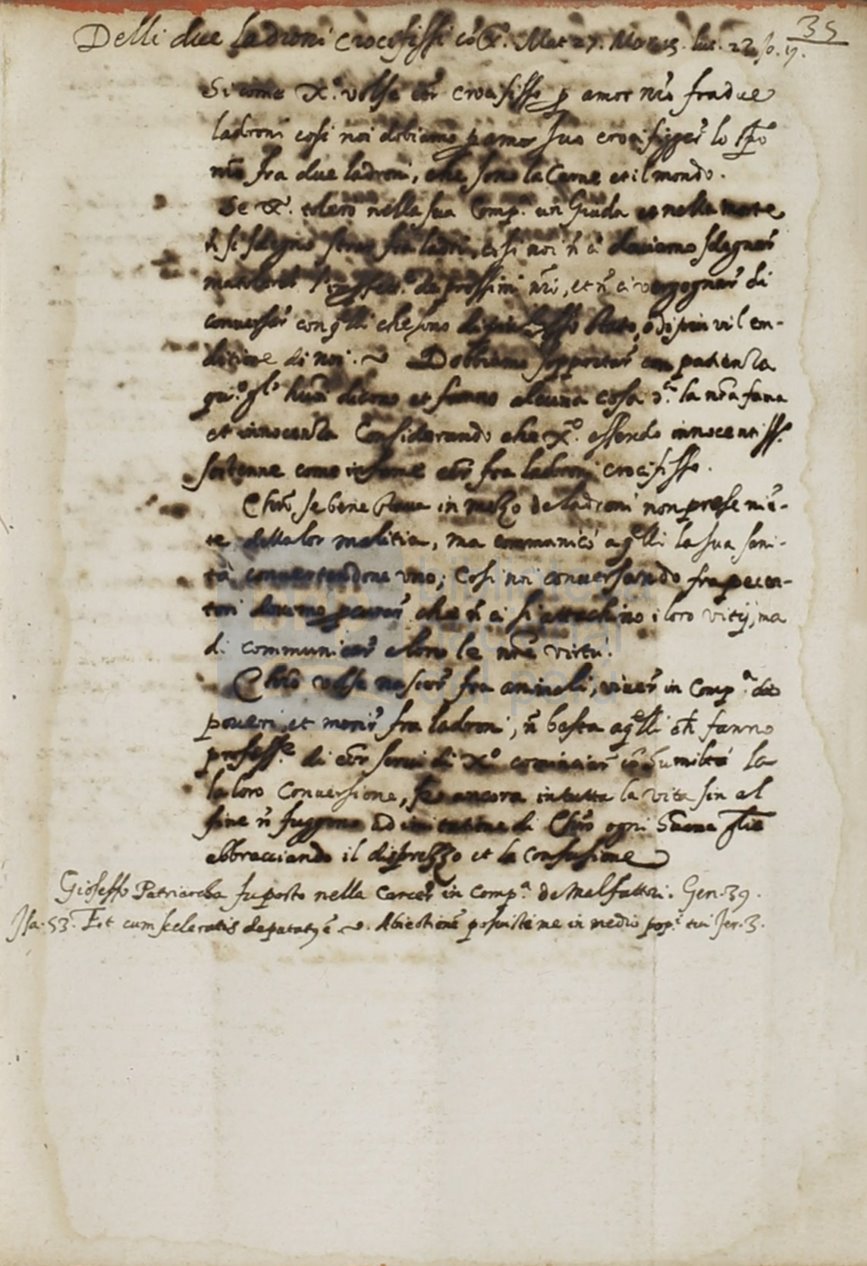 Delli due ladroni crocifissi cõ X.º Mat 27. Mar 15. luc. 23. Jo. 19.
35
Si come X.º volse eẽr crocifisso p amor nr̃o fra due
ladroni cosi noi dobiamo p amor suo crocifigger lo spõ
nr̃o fra due ladroni, che sono la Carne et il mondo.
Se X.º tolerò nella sua Comp.ª un Giuda et nella morte
si sdegnò fra ladri, cosi noi ñ ci doviamo sdegnar
de prossimi nr̃i, et ñ ci vergognar di
conversar con q̃lli che sono di più basso stato, o di più vil con-
ditione di noi. Dobbiamo sopportar con patienza
gl' dicono et fanno alcuna cosa la nr̃a fama
et innocenza Considerando che X.º essendo innocentiss.º
sostenne come infame eẽr fra ladroni crocifisso.
Chrõ se bene stava in mezo de ladroni non prese niẽ-
te della lor malitia, ma communicò a q̃lli la sua sani-
tà convertendone uno; Cosi noi conversando fra pecca-
tori che ñ ci si attachino i loro vitij, ma
di communicar a loro le nr̃e virtù.
Chrõ volse nascer fra animali, viver in Comp.ª de
poveri, et morir fra ladroni, ñ basta a q̃lli ch̃ fanno
profess.e di eẽr servi di X.º cominciar cõ humiltà la
la loro Conversione, se ancora in tutta la vita sin al
fine ñ fuggono ad imitatione di Chrõ ogni humana glia
abbracciando il disprezzo et la confusione
Gioseffo Patriarcha fu posto nella Carcer in Comp.ª de Malfattori. Gen. 39.
Isa. 53. Et cum sceleratis deputatus ẽ. Abiectionẽ posuisti me in medio pop. tui Jer. 3.